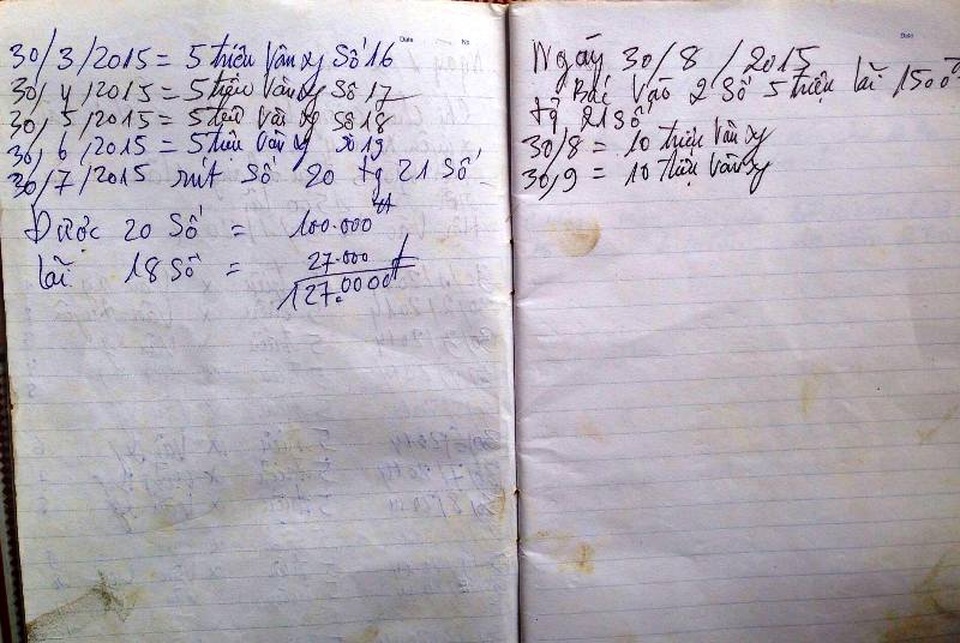 30/3/2015 = 5 triệu Vân xy Số 16
30/4/2015 = 5 triệu Vân xy Số 17
30/5/2015 = 5 triệu Vân xy Số 18
30/6/2015 = 5 triệu Vân xy Số 19
30/7/2015 rút Số 20 tg 21 Số
Được 20 Số = 100.000
lãi 18 Số = 27.000
127.0000
Ngày 30/8/2015
Bác Vào 2 Số 5 triệu lãi 1500đ
tg 21 Số
30/8 = 10 triệu Vân xy
30/9 = 10 triệu Vân xy